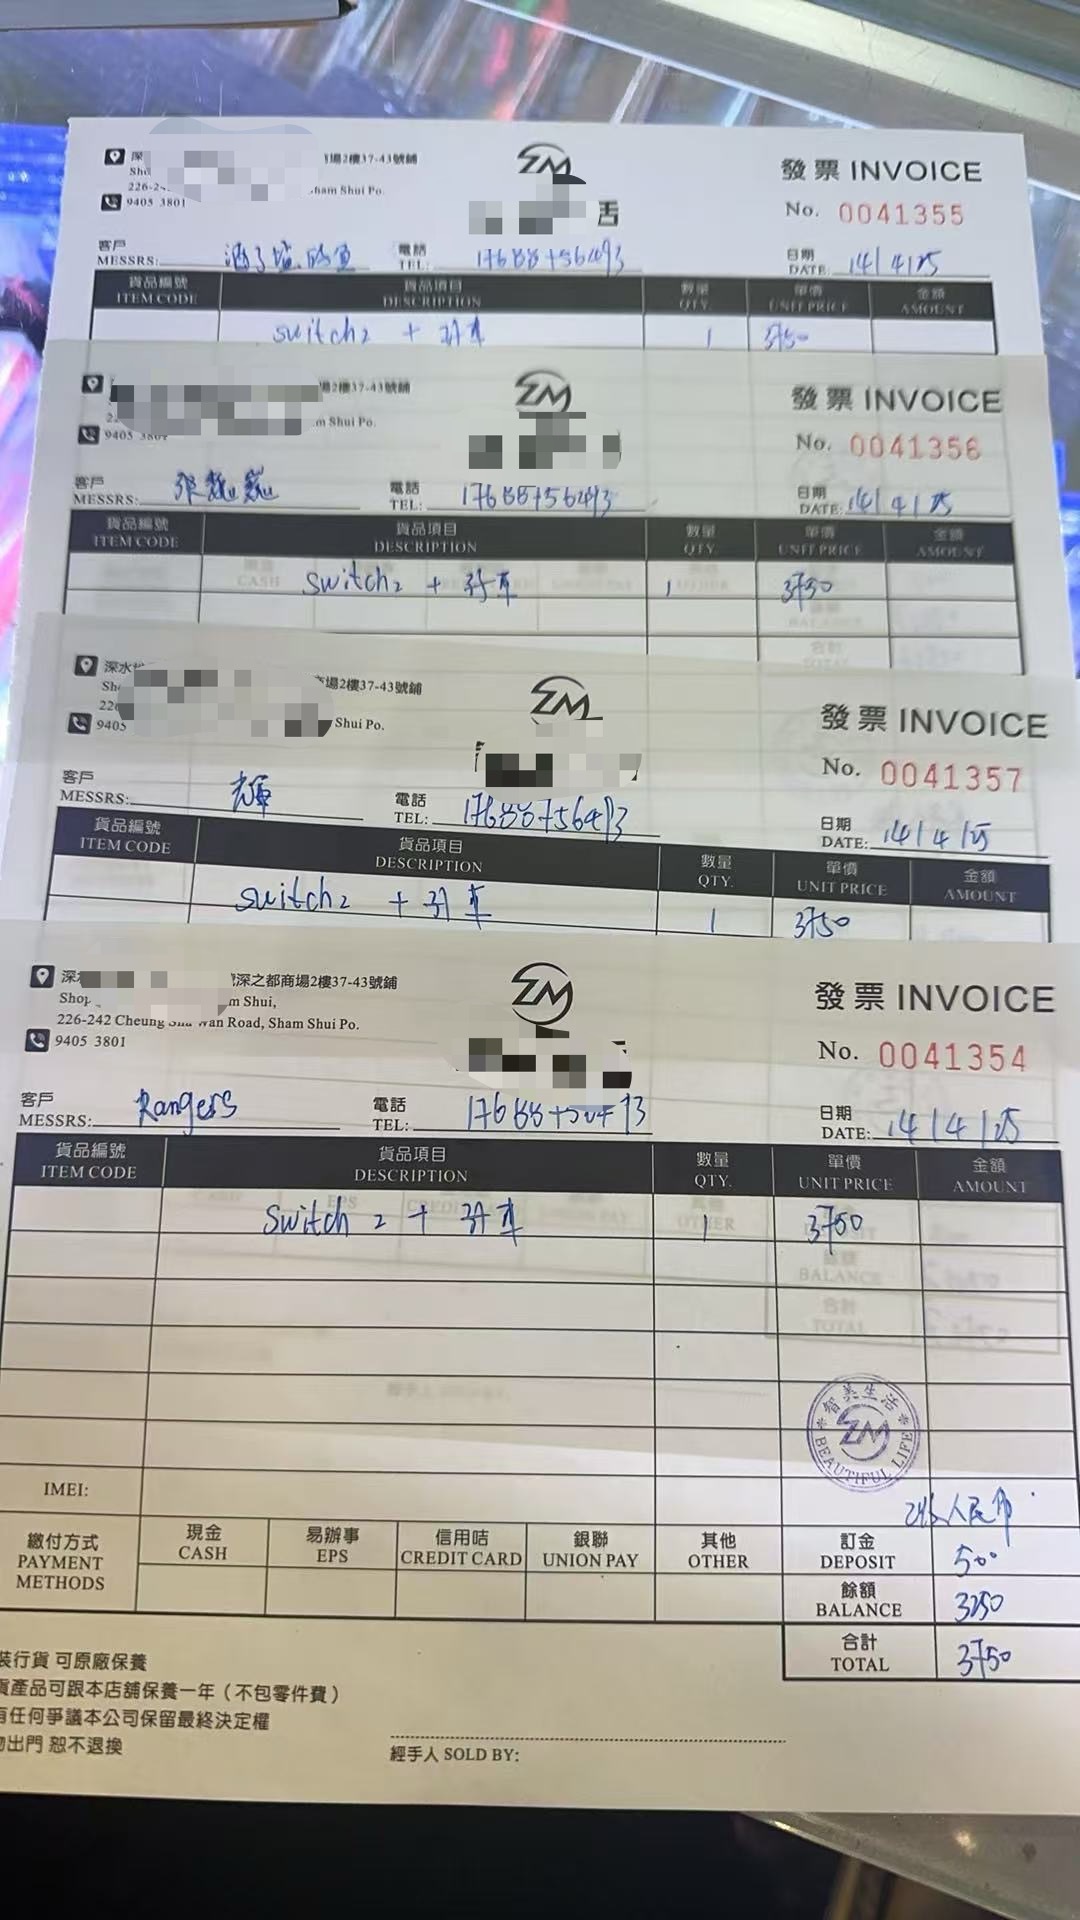 場2樓37-43號鋪
Sham Shui Po.
9405 3801
ZM
發票 INVOICE
No. 0041355
客戶
MESSRS:
電話
TEL:
日期
DATE: 14/4/25
貨品編號 貨品項目 數量 單價 金額
ITEM CODE DESCRIPTION QTY. UNIT PRICE AMOUNT
switch2 + 1 3750
場2樓37-43號鋪
m Shui Po.
9405 3801
ZM
發票 INVOICE
No. 0041356
客戶
MESSRS: 張巍巍
電話
TEL:
日期
DATE: 14/4/25
貨品編號 貨品項目 數量 單價 金額
ITEM CODE DESCRIPTION QTY. UNIT PRICE AMOUNT
switch2 + 1 3750
深水
市場2樓37-43號鋪
Shui Po.
9405
ZM
發票 INVOICE
No. 0041357
客戶
MESSRS: 輝
電話
TEL:
日期
DATE: 14/4/25
貨品編號 貨品項目 數量 單價 金額
ITEM CODE DESCRIPTION QTY. UNIT PRICE AMOUNT
switch2 + 1 3750
深 深之都商場2樓37-43號鋪
Shop m Shui,
226-242 Cheung Sha Wan Road, Sham Shui Po.
9405 3801
ZM
發票 INVOICE
No. 0041354
客戶
MESSRS: Rangers
電話
TEL:
日期
DATE: 14/4/25
貨品編號 貨品項目 數量 單價 金額
ITEM CODE DESCRIPTION QTY. UNIT PRICE AMOUNT
switch 2 + 1 3750
智美生活
ZM
BEAUTIFUL LIFE
IMEI:
人民币
繳付方式 現金 易辦事 信用咭 銀聯 其他 訂金
PAYMENT METHODS CASH EPS CREDIT CARD UNION PAY OTHER DEPOSIT 500
餘額
BALANCE 3250
合計
TOTAL 3750
裝行貨 可原廠保養
貨產品可跟本店舖保養一年（不包零件費）
有任何爭議本公司保留最終決定權
出門 恕不退換
經手人 SOLD BY: